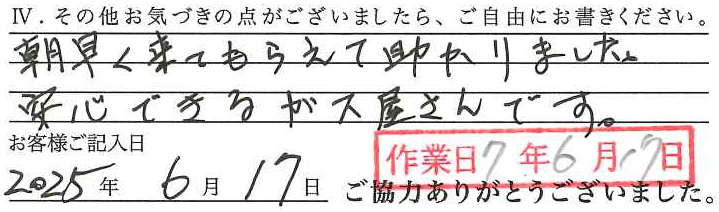 Ⅳ．その他お気づきの点がございましたら、ご自由にお書きください。
朝早く来てもらえて助かりました。
安心できるガス屋さんです。
お客様ご記入日
2025年 6月 17日
作業日 7年6月17日
ご協力ありがとうございました。